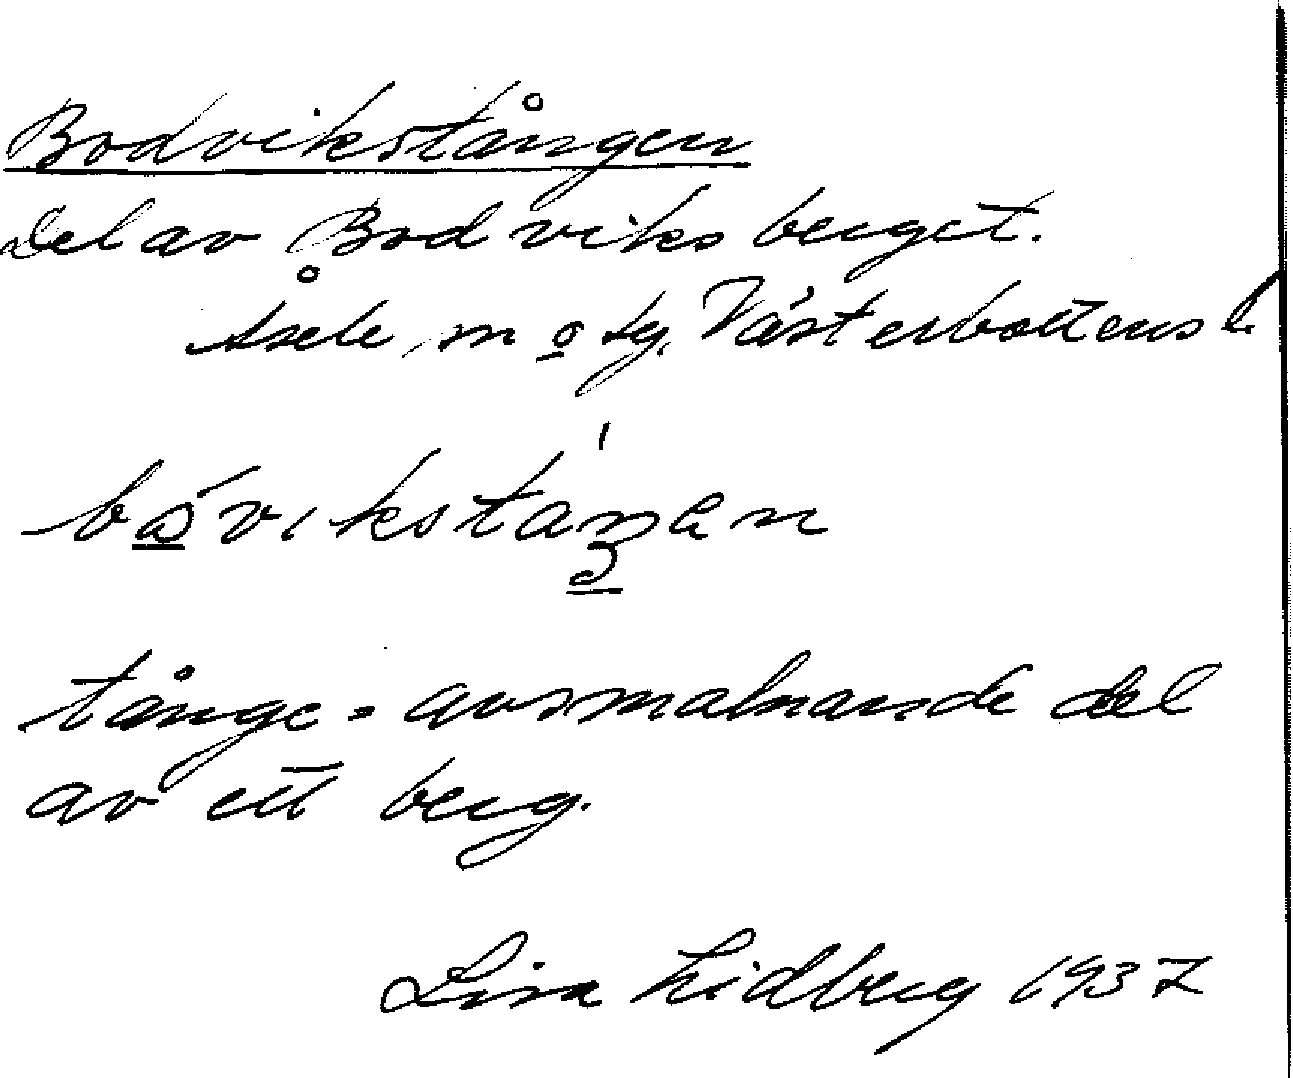 Bodvikstången
Del av Bodviksberget.
Åsele, m o sg. Västerbottens l.
tånge = avsmalnande del
av ett berg.
Lisa Lidberg 1937